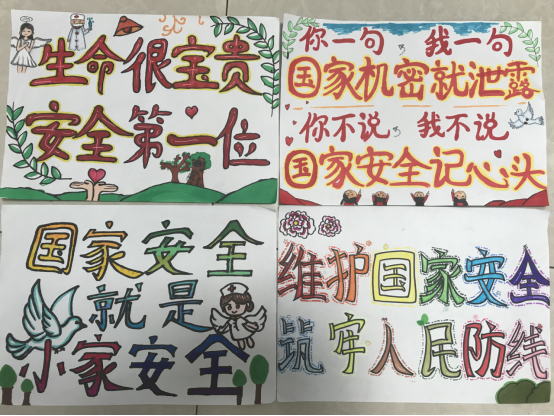 生命很宝贵
安全第一位
你一句 我一句
国家机密就泄露
你不说 我不说
国家安全记心头
国家安全
就是
小家安全
维护国家安全
筑牢人民防线